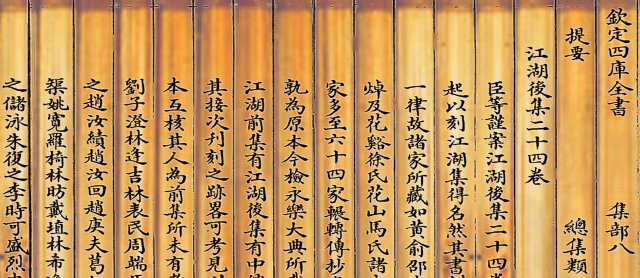 欽定四庫全書 集部八
提要 總集類
江湖後集二十四卷
臣等謹案江湖後集二十四卷
起以刻江湖集得名然其書
一律故諸家所藏如黃俞邰
焯及花谿徐氏花山馬氏諸
家多至六十四家輾轉傳抄
孰為原本今檢永樂大典所載
江湖前集有江湖後集有中
其接次刋刻之跡畧可考見
本互核其人為前集所未有
劉子澄林逢吉林表民周端
之趙汝績趙汝回趙庚夫葛
棨姚寛羅椅林昉戴埴林希
之儲泳朱復之李時可盛烈